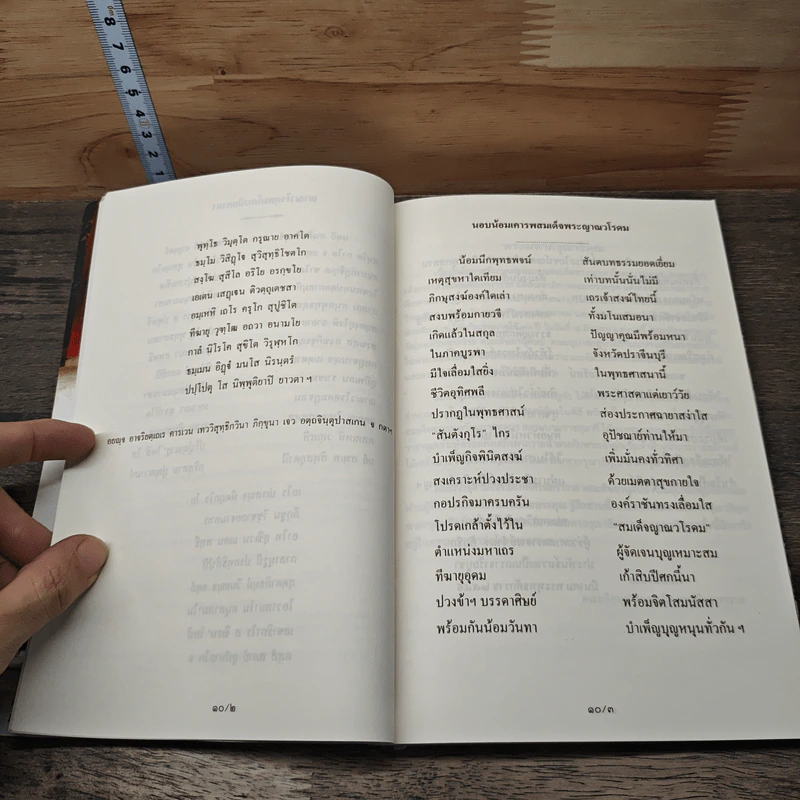 8
7
6
5
4
3
2
1
พุทฺโธ วิมุตฺโต กรุณาย อาคโต
ธมฺโม วิสิฏฺโฐ สุวิสุทฺธิโชตโก
สงฺโฆ สุสีโล อริโย อรกฺขโย
เอเตน เสฏฺเจน ติวตฺถุเตชสา
อมฺเหหิ เถโร ครุโก สุปูชิโต
ทีฆายุ วุฑฺโฒ อถวา อนามโย
กาลํ นิโรโค สุขิโต วิรุฬฺหโก
ธมฺเมน อิฏฺฐํ มนโส นิรนฺตรํ
ปปฺโปตุ โส นิพฺพุติยาปิ ยาวตา ฯ
อยญฺจ อาจริยตฺเถเร คารเวน เทววิสุทฺธิกวินา ภิกฺขุนา เจว อตฺถจินฺตุปาสเกน จ กตา ฯ
๑๐/๒
นอบน้อมเคารพสมเด็จพระญาณวโรดม
น้อมนึกพุทธพจน์ สันตบทธรรมยอดเยี่ยม
เหตุสุขหาใดเทียม เท่าบทนั้นนั่นไม่มี
ภิกษุสงฆ์องค์ใดเล่า เถรเจ้าสงฆ์ไทยนี้
สงบพร้อมกายวจี ทั้งมโนเสมอนา
เกิดแล้วในสกุล ปัญญาคุณมีพร้อมหนา
ในภาคบูรพา จังหวัดปราจีนบุรี
มีใจเลื่อมใสยิ่ง ในพุทธศาสนานี้
ชีวิตอุทิศพลี พระศาสดาแต่เยาว์วัย
ปรากฏในพุทธศาสน์ ส่องประกาศฉายาสง่าใส
"สันตังกุโร" ไกร อุปัชฌาย์ท่านให้มา
บำเพ็ญกิจพินิตสงฆ์ เพิ่มมั่นคงทั่วทิศา
สงเคราะห์ปวงประชา ด้วยเมตตาสุขกายใจ
กอปรกิจมาครบครัน องค์ราชันทรงเลื่อมใส
โปรดเกล้าตั้งไว้ใน "สมเด็จญาณวโรดม"
ตำแหน่งมหาเถร ผู้จัดเจนบุญเหมาะสม
ทีฆายุอุดม เก้าสิบปีศกนี้นา
ปวงข้าฯ บรรดาศิษย์ พร้อมจิตโสมนัสสา
พร้อมกันน้อมวันทา บำเพ็ญบุญหนุนทั่วกัน ฯ
๑๐/๓